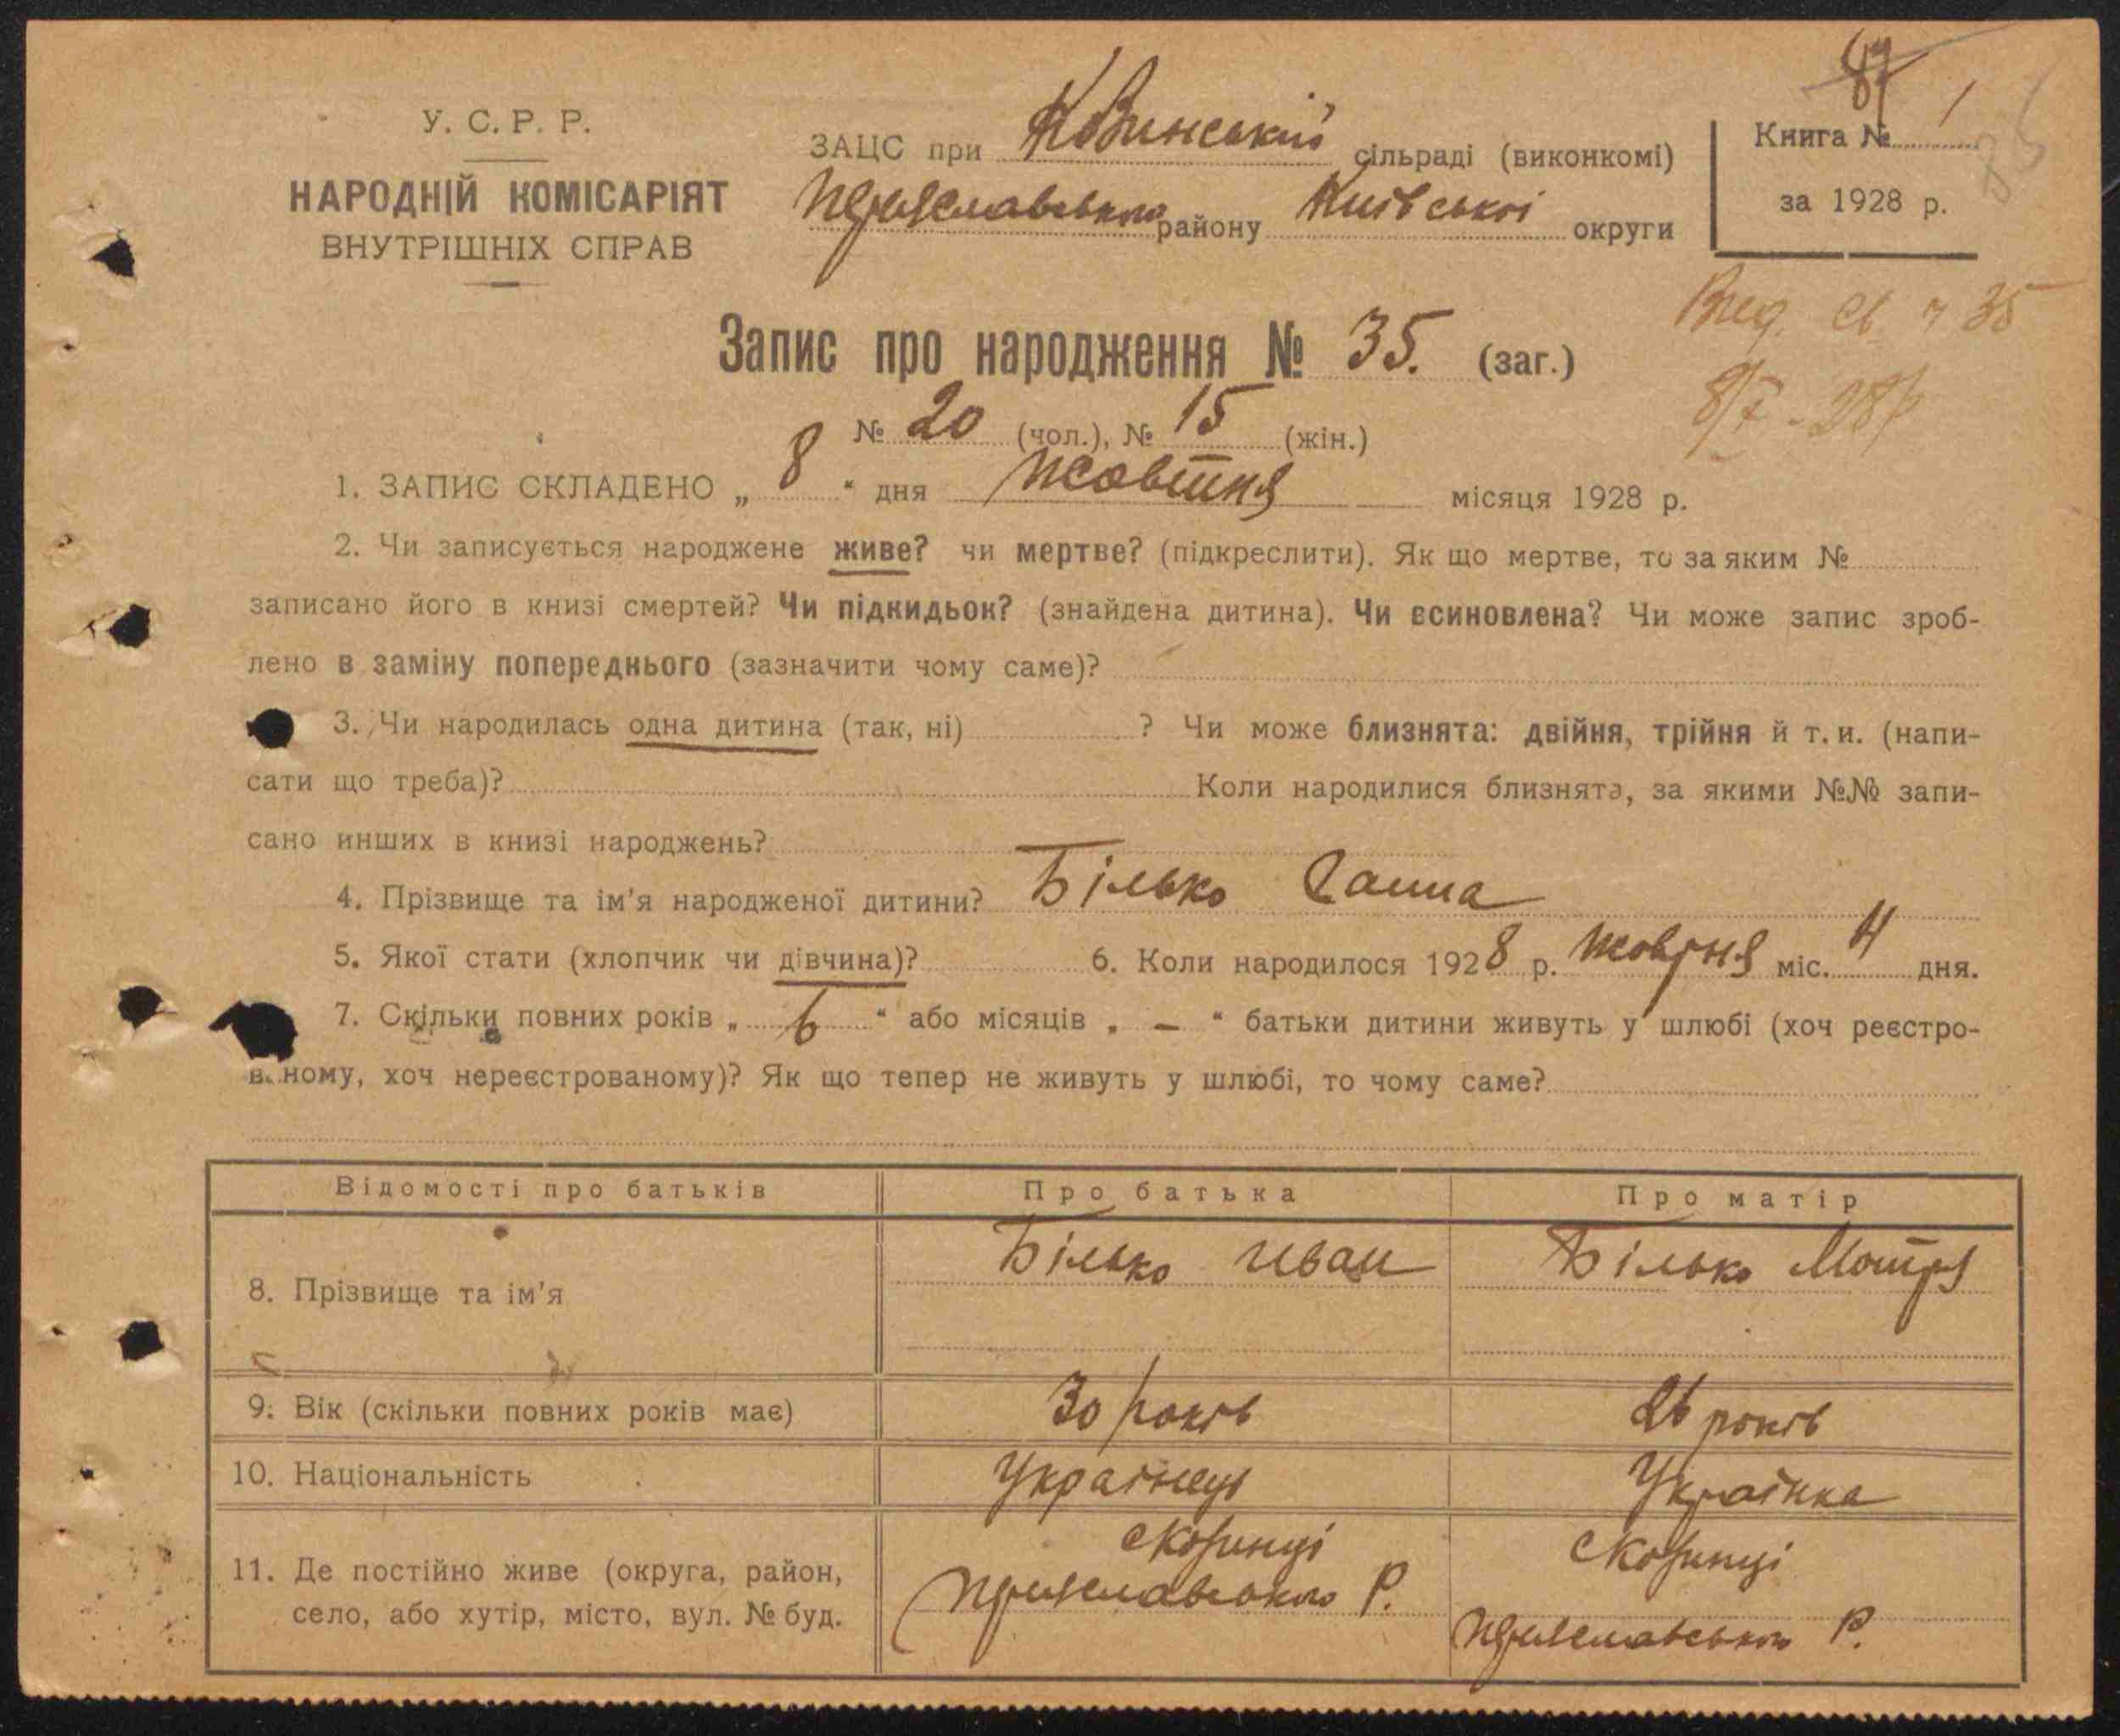 У. С. Р. Р.
НАРОДНІЙ КОМІСАРІЯТ
ВНУТРІШНІХ СПРАВ
ЗАЦС при Ковинській сільраді (виконкомі)
району Київської округи
87
Книга № 1
за 1928 р.
35
Запис про народження № 35. (заг.)
№ 20 (чол.), № 15 (жін.)
1. ЗАПИС СКЛАДЕНО „ 8 “ дня жовтня місяця 1928 р.
2. Чи записується народжене живе? чи мертве? (підкреслити). Як що мертве, то за яким №
записано його в книзі смертей? Чи підкидьок? (знайдена дитина). Чи всиновлена? Чи може запис зроб-
лено в заміну попереднього (зазначити чому саме)?
3. Чи народилась одна дитина (так, ні) ? Чи може близнята: двійня, трійня й т. и. (напи-
сати що треба)? Коли народилися близнята, за якими №№ запи-
сано инших в книзі народжень?
4. Прізвище та ім’я народженої дитини? Білько Ганна
5. Якої стати (хлопчик чи дівчина)? 6. Коли народилося 1928 р. жовтня міс. 4 дня.
7. Скільки повних років „ 6 “ або місяців „ – “ батьки дитини живуть у шлюбі (хоч реєстро-
ваному, хоч нереєстрованому)? Як що тепер не живуть у шлюбі, то чому саме?
Відомості про батьків Про батька Про матір
8. Прізвище та ім’я Білько Иван Білько Мотря
9. Вік (скільки повних років має) 30 років 26 років
10. Національність Українец Українка
11. Де постійно живе (округа, район,
село, або хутір, місто, вул. № буд.
Р.
Р.